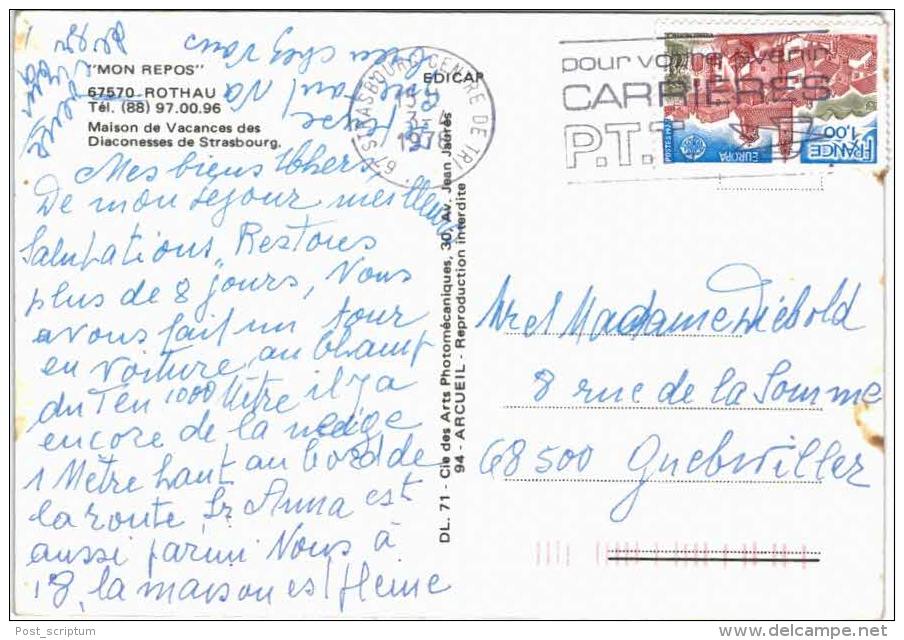 "MON REPOS"
67570 - ROTHAU
Tél. (88) 97.00.96
Maison de Vacances des
Diaconesses de Strasbourg.
Mes biens chers,
De mon sejour meilleur
Salutations, Restons
plus de 8 jours, Nous
avons fait un tour
en voiture, au champ
du Feu 1000 Mètre il y a
encore de la neige
1 Mètre haut au bord de
la route, Sr Anna est
aussi parmi Nous à
18, la maison est
chez vous
EDICAP
DL. 71 - Cie des Arts Photomécaniques, 30, Av. Jean Jaurès
94 - ARCUEIL - Reproduction interdite
67 STRASBOURG CENTRE DE TRI
13 H
3 - 4
1978
pour votre avenir
CARRIÈRES
P.T.T.
FRANCE
1,00
EUROPA
POSTES 1977
Mr et Madame Diébold
8 rue de la Somme
68500 Guebwiller
Post_scriptum
delcampe.net